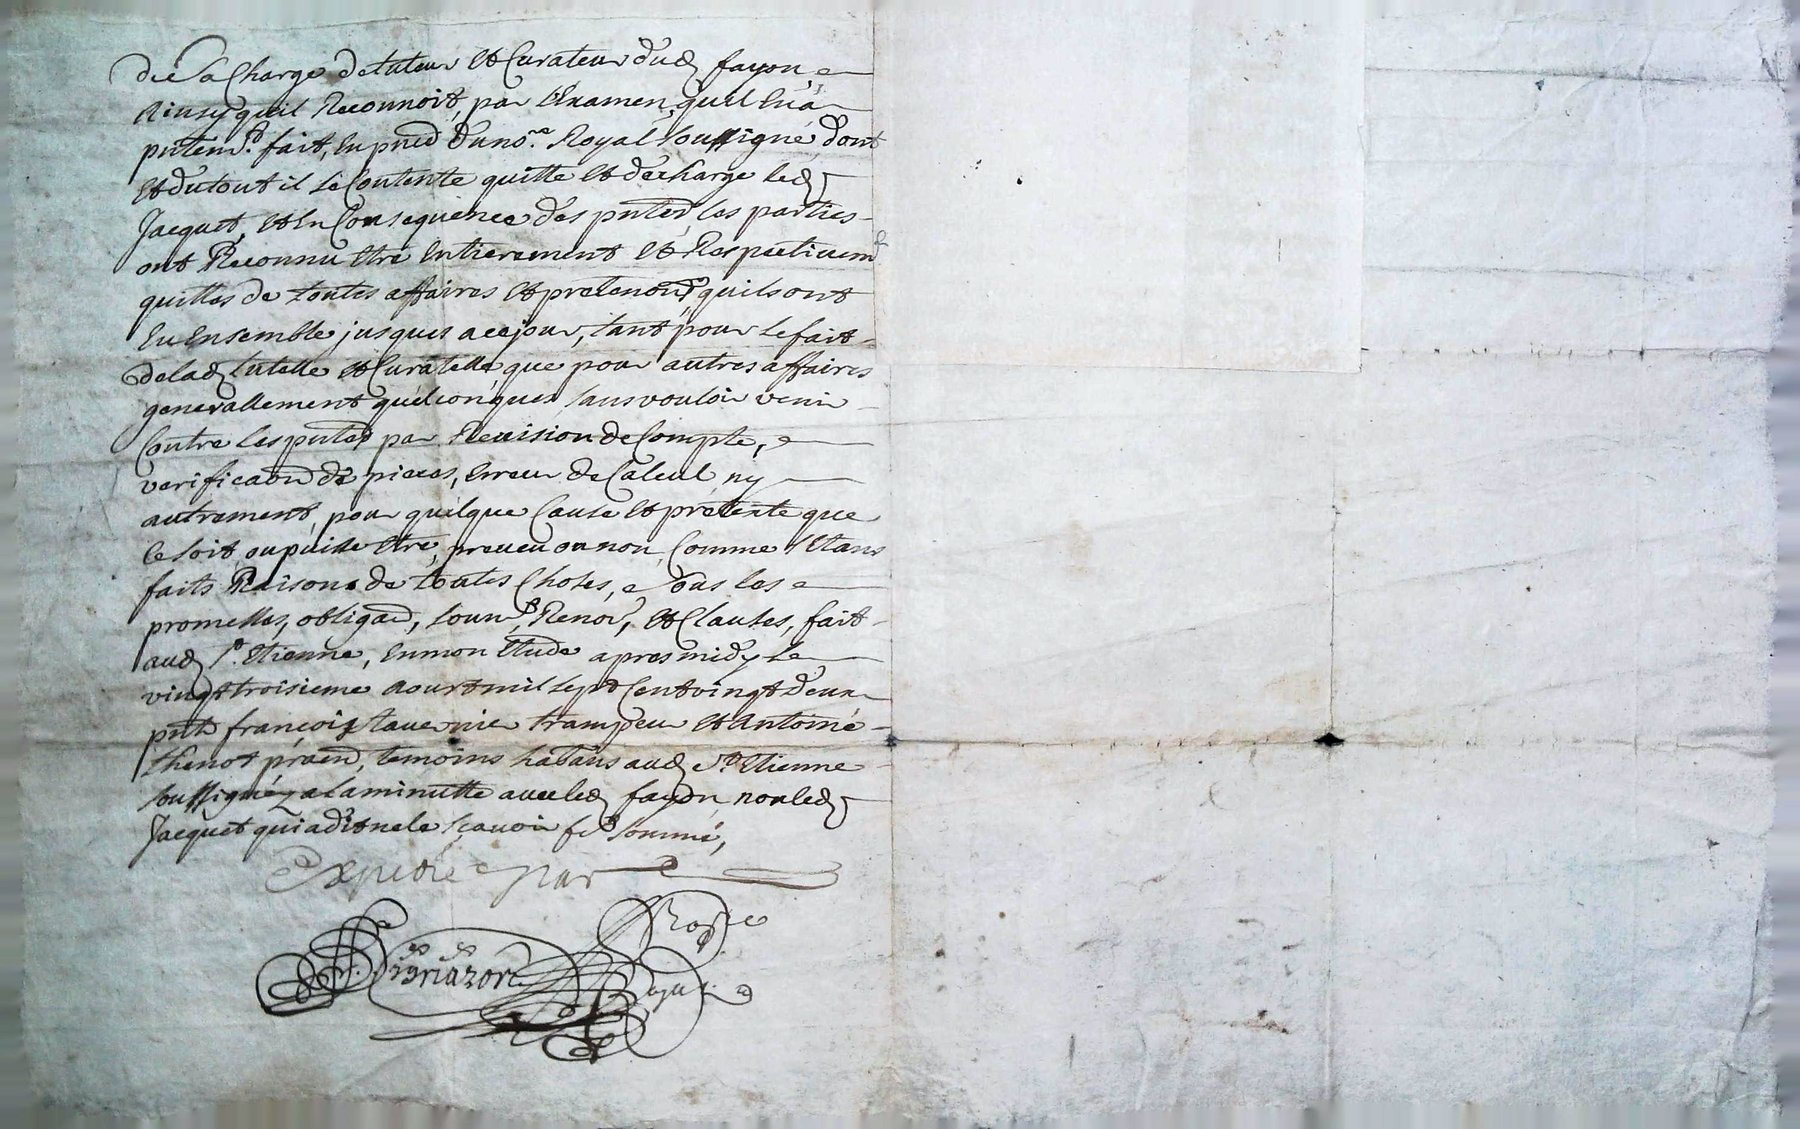 de sa Charge de tuteur et Curateur dud fayon,
Ainsy quil Reconnoit, par l'Examen, quil en a
pntem.t fait, en pnce du no.re Royal soussigné, dont
et du tout il se Contente quitte et decharge led
Jacquet, et en Consequence des pntes, les parties
ont Reconnu etre entierement et Respectivem
quittes de toutes affaires et pretenons quils ont
Eu Ensemble jusques a ce jour, tant pour le fait
de lad tutelle et Curatelle, que pour autres affaires
generallement quelconques, sans vouloir venir
Contre les pntes par Revision de Compte,
verificaon de pieces, erreur de Calcul, ny
autrement, pour quelque Cause et pretexte que
ce soit, ou puisse etre, preveu ou non, Comme s'etans
faits Raison de toutes Choses, sous les
promesses, obligaons, soum.s, Renons, et Clauses, fait
aud St. Etienne, en mon etude apres midy le
vingt troisieme aoust mil sept Cent vingt deux
pnts françois tavernier trampeur et Antoine
thenot praen, temoins habitans aud St. Etienne
soussignéz a la minutte avec led fayon, non led
Jacquet qui a dit ne le sçavoir fe sommé,
Expedié par